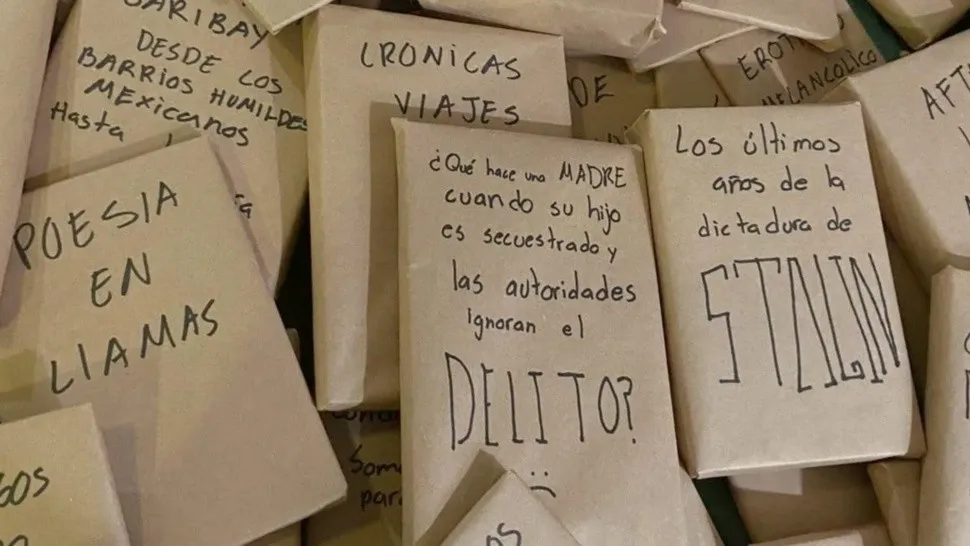 GARIBAY
DESDE LOS
BARRIOS HUMILDES
MEXICANOS
Hasta
CRONICAS
VIAJES
DE
EROT
MELANCOLICO
AFT
POESIA
EN
LLAMAS
¿Qué hace una MADRE
cuando su hijo
es secuestrado y
las autoridades
ignoran el
DELITO?
:(
Los últimos
años de la
dictadura de
STALIN
Som
para